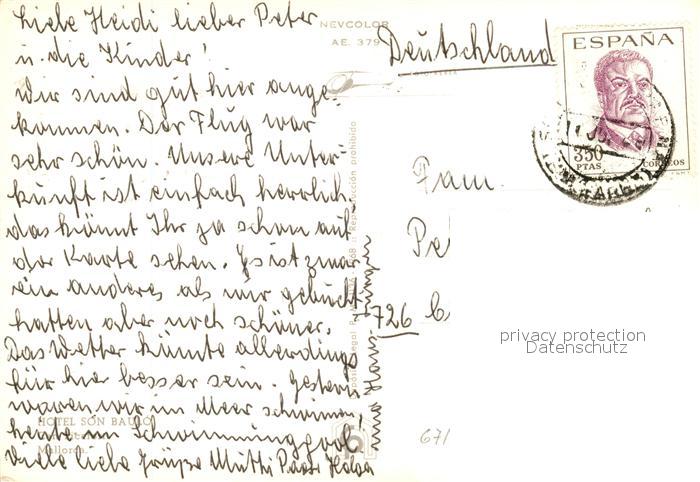 Liebe Heidi lieber Peter
u. die Kinder!
Wir sind gut hier ange-
kommen. Der Flug war
sehr schön. Unsere Unter-
kunft ist einfach herrlich.
das könnt Ihr ja schon auf
der Karte sehen. Es ist zwar
ein anderes als wir gebucht
hatten aber noch schöner.
Das Wetter könnte allerdings
für hier besser sein. Gestern
waren wir im Meer schwimmen,
heute im Schwimmingpool.
Viele liebe Grüße Mutti Papa
Hans-
NEVCOLOR
AE. 379
Reproducción prohibida
HOTEL SON BAULO
Mallorca.
Deutschland
Fam.
Pe
726
671
ESPAÑA
3'50
PTAS
CORREOS
privacy protection
Datenschutz